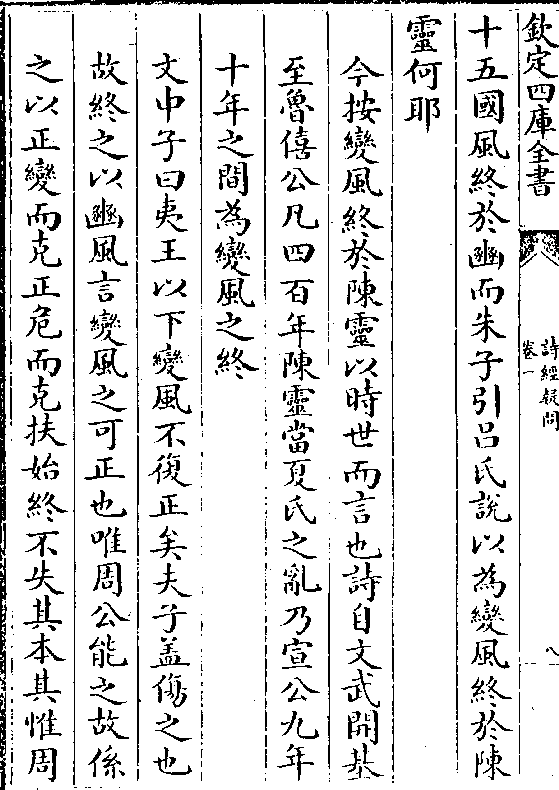 欽定四庫全書
詩經疑問
卷一
八
十五國風終於豳而朱子引呂氏說以為變風終於陳
靈何耶
今按變風終於陳靈以時世而言也詩自文武開基
至魯僖公凡四百年陳靈當夏氏之亂乃宣公九年
十年之間為變風之終
文中子曰夷王以下變風不復正矣夫子盖傷之也
故終之以豳風言變風之可正也唯周公能之故係
之以正變而克正危而克扶始終不失其本其惟周